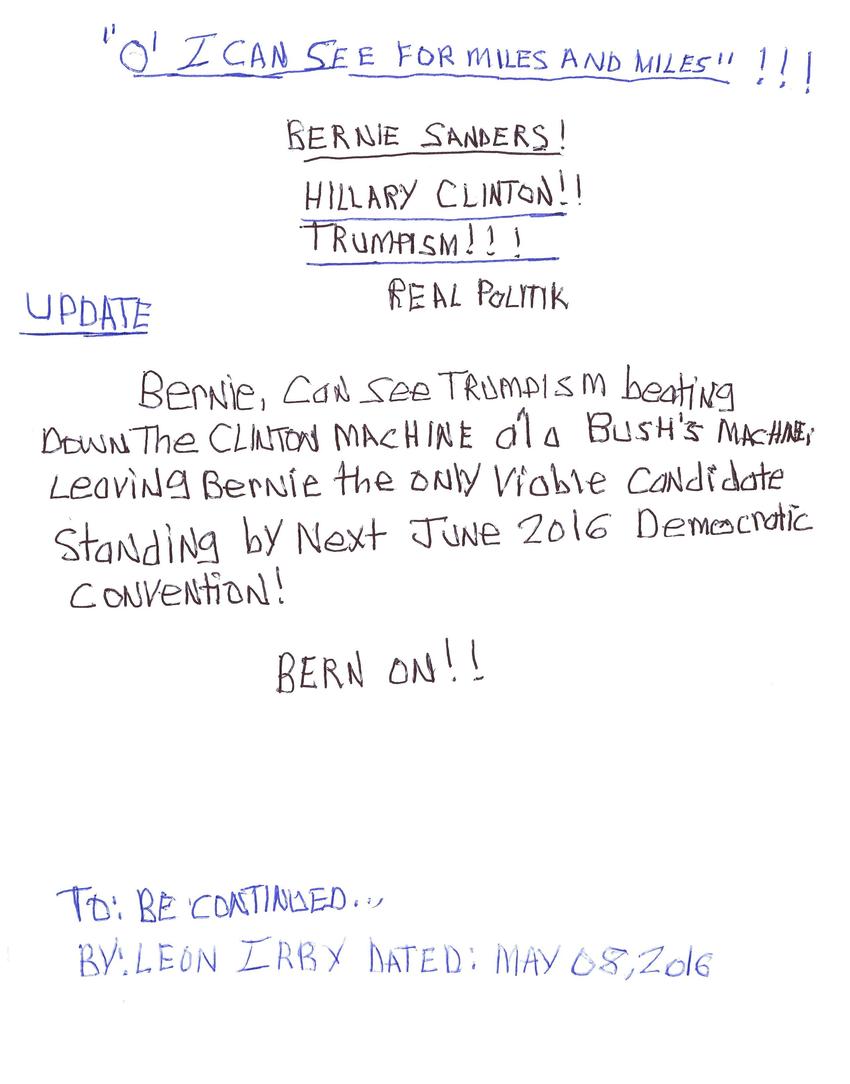 "O' I CAN SEE FOR MILES AND MILES" !!!
BERNIE SANDERS!
HILLARY CLINTON!!
TRUMPISM!!!
REAL POLITIK
UPDATE
Bernie, Can See TRUMPISM beating
Down The CLINTON MACHINE a'la BUSH'S MACHINE,
Leaving Bernie the only Viable Candidate
Standing by Next June 2016 Democratic
Convention!
BERN ON!!
TO: BE CONTINUED...
BY: LEON IRBY DATED: MAY 08, 2016